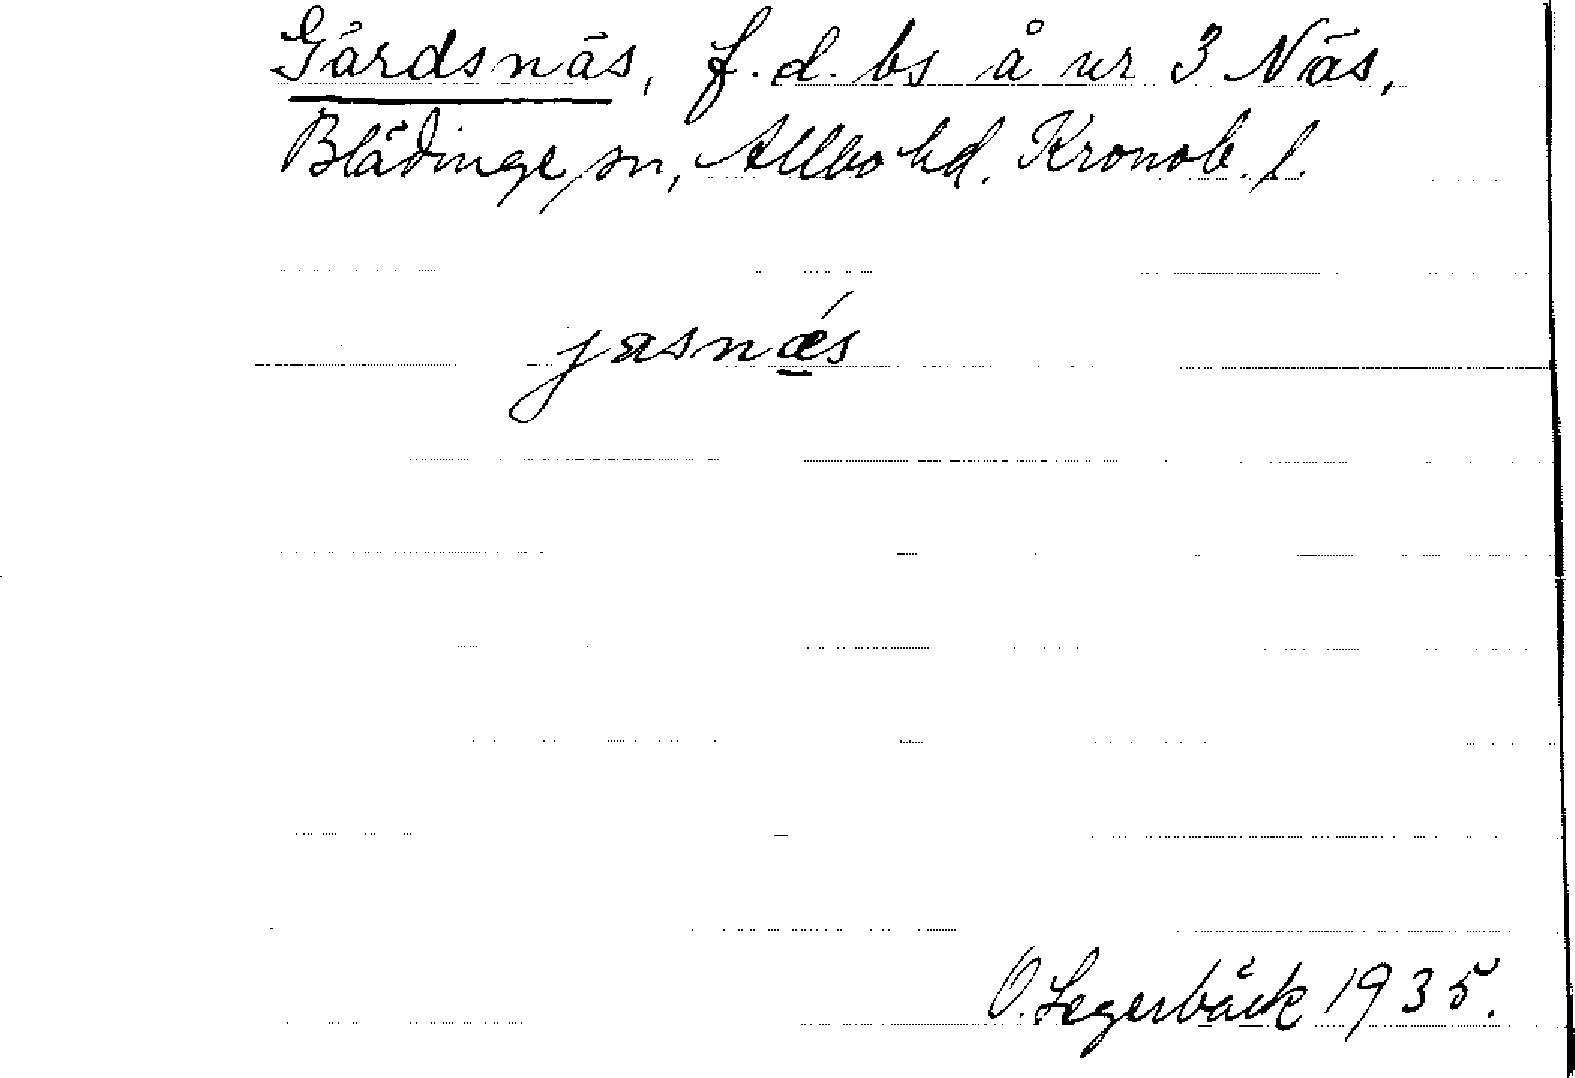 Gärdsnäs, f.d. bs å nr 3 Näs,
Blädinge sn, Allbo hd. Kronob. l.
jasnǽs
O. Segerbäck 1935.